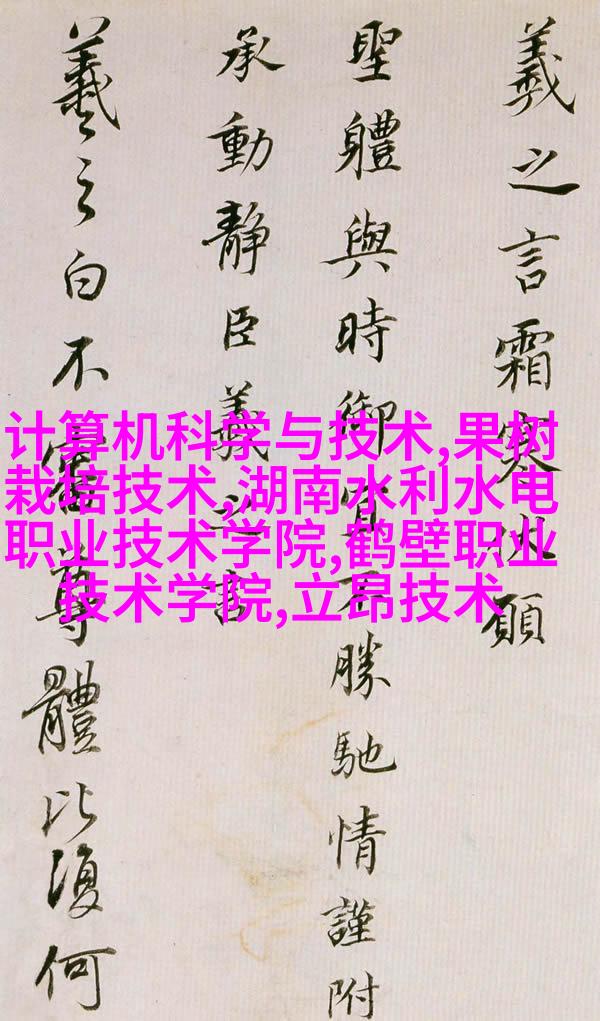 義之言霜寒伏願
聖體與時御宜不勝馳情謹附
承動靜臣義之言
羲之白不審尊體比復何
计算机科学与技术,果树
栽培技术,湖南水利水电
职业技术学院,鹤壁职业
技术学院,立昂技术